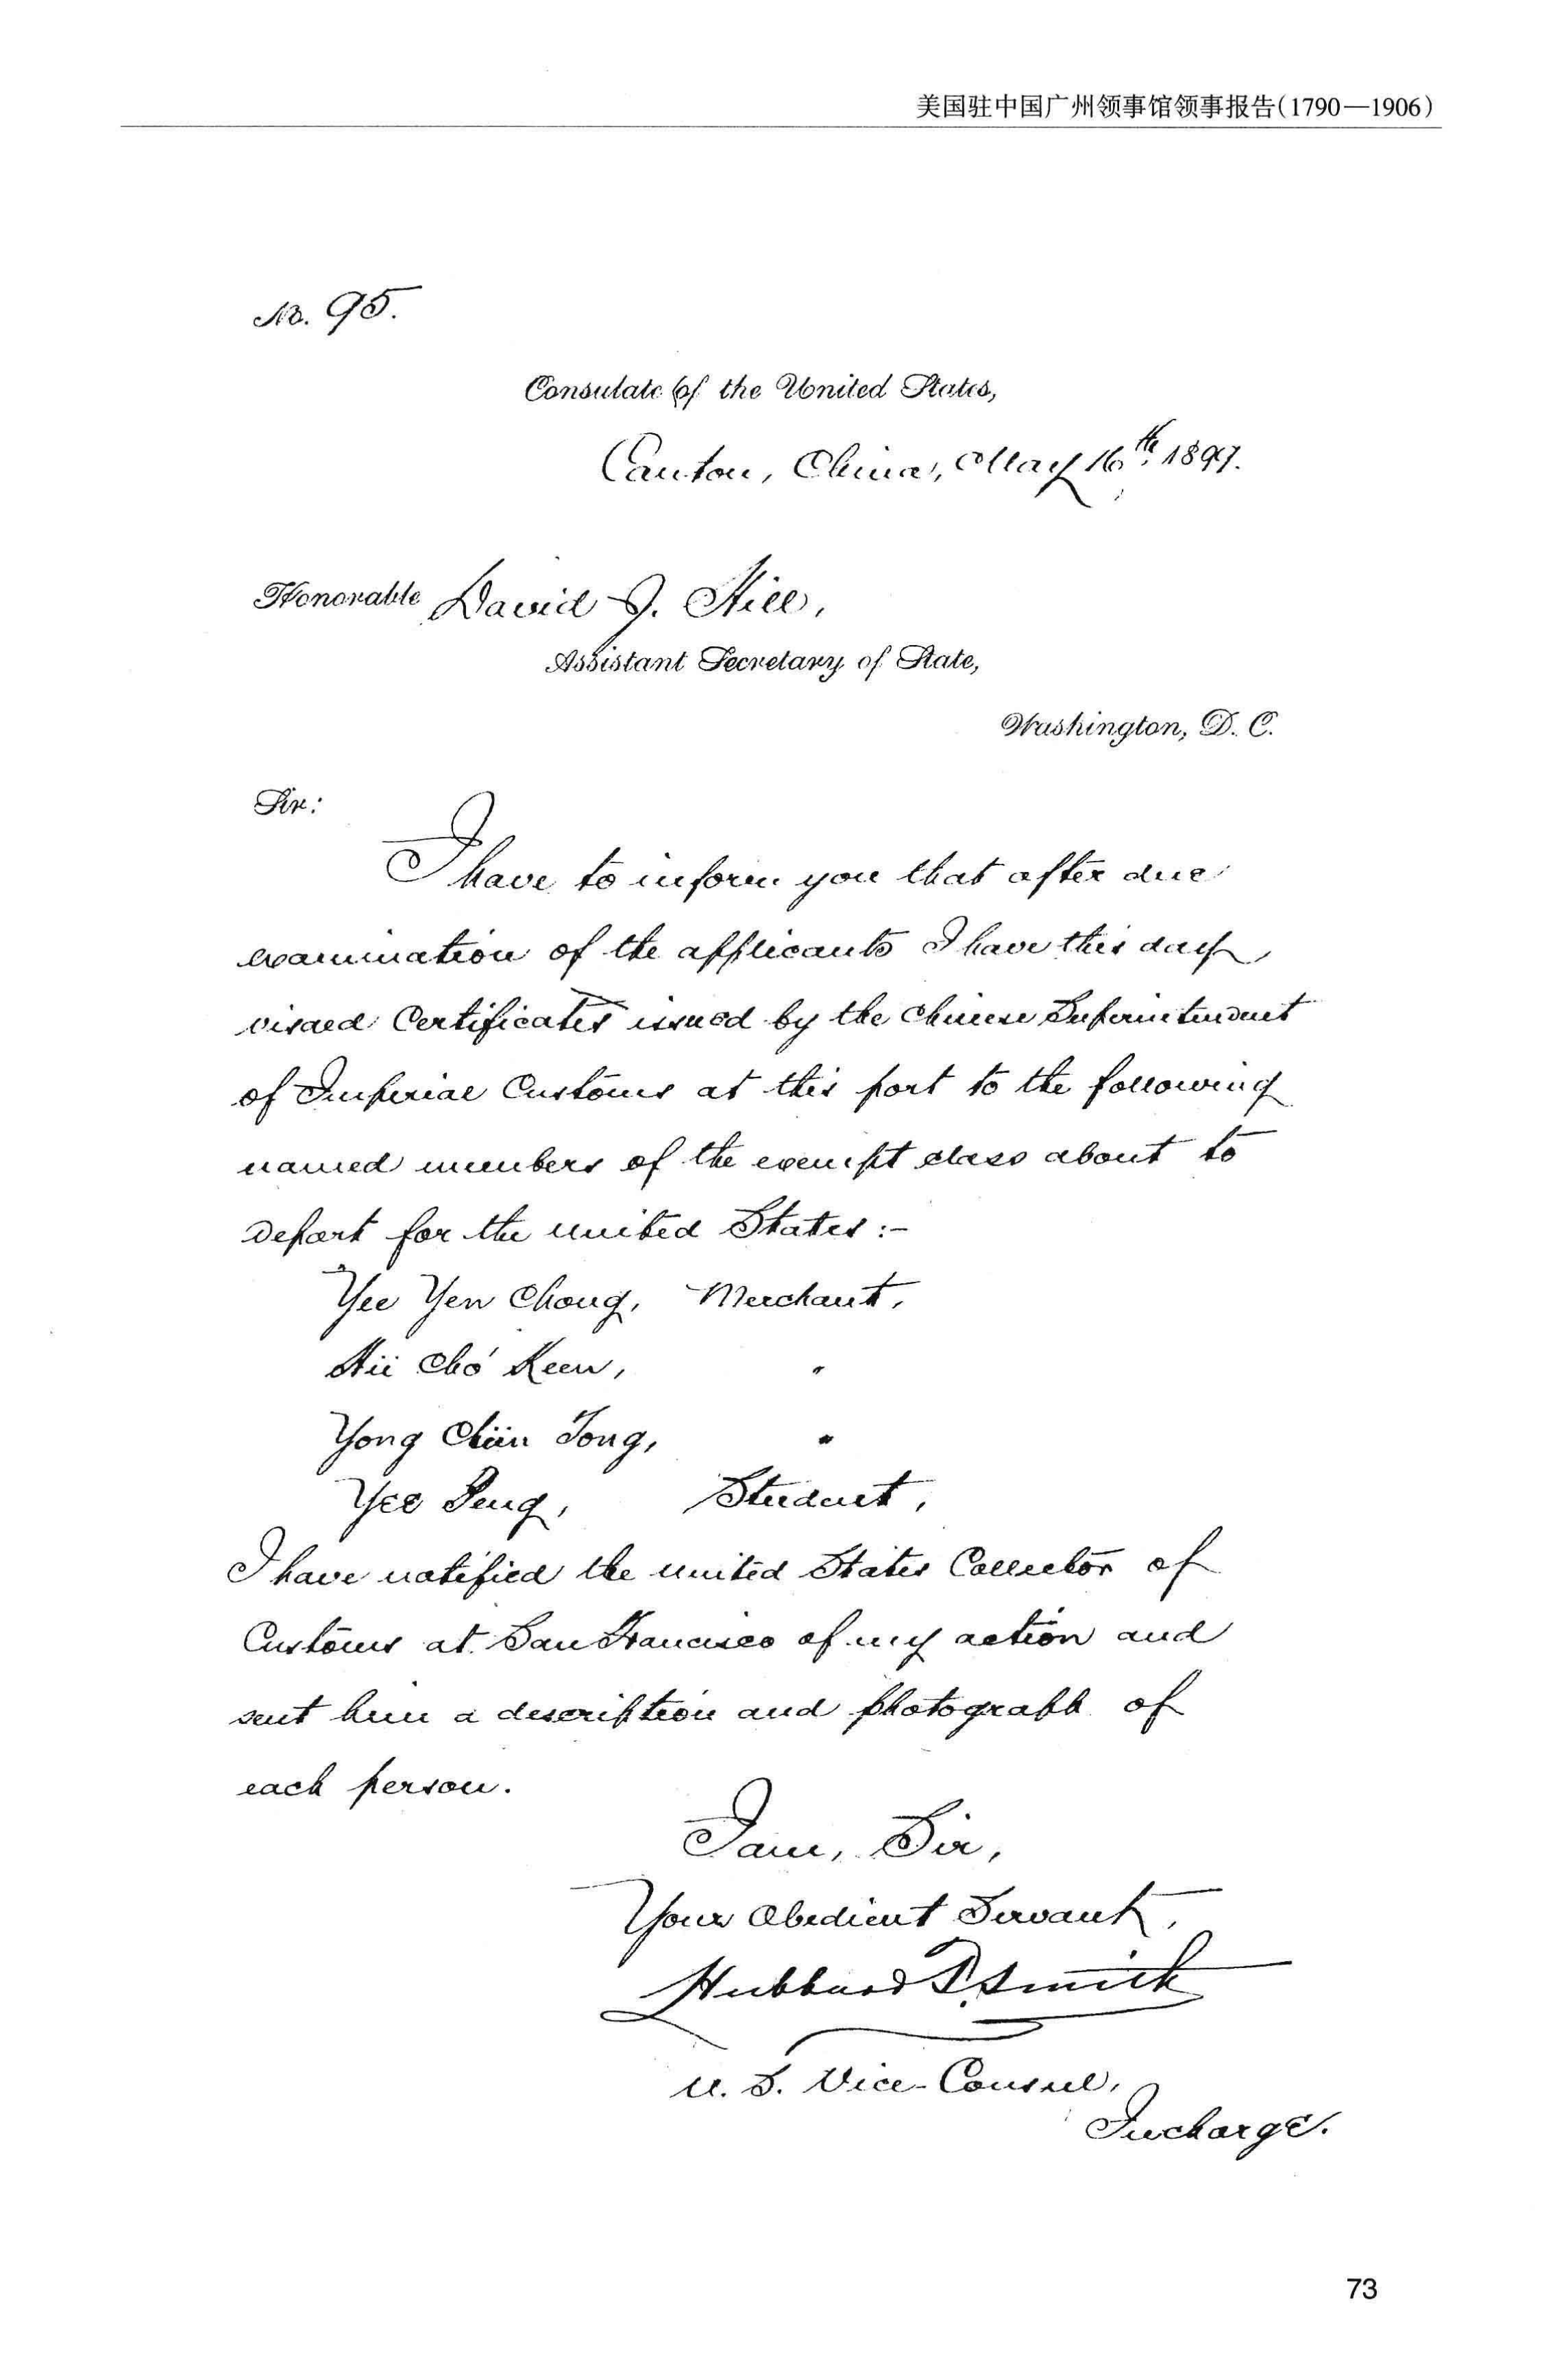 美国驻中国广州领事馆领事报告(1790—1906)
No. 95.
Consulate of the United States,
Canton, China, May 16th, 1899.
Honorable David J. Hill,
Assistant Secretary of State,
Washington, D. C.
Sir:
I have to inform you that after due
examination of the applicants I have this day
visaed Certificates issued by the Chinese Superintendent
of Imperial Customs at this port to the following
named members of the exempt class about to
depart for the United States :-
Yee Yen Chong, Merchant,
Hii Cho Keen, "
Yong Chiin Tong, "
Yee , Student,
I have notified the United States Collector of
Customs at San Francisco of my action and
sent him a description and photograph of
each person.
I am, Sir,
Your Obedient Servant,
Hubbard T. Smith
U. S. Vice-Consul,
In charge.
73